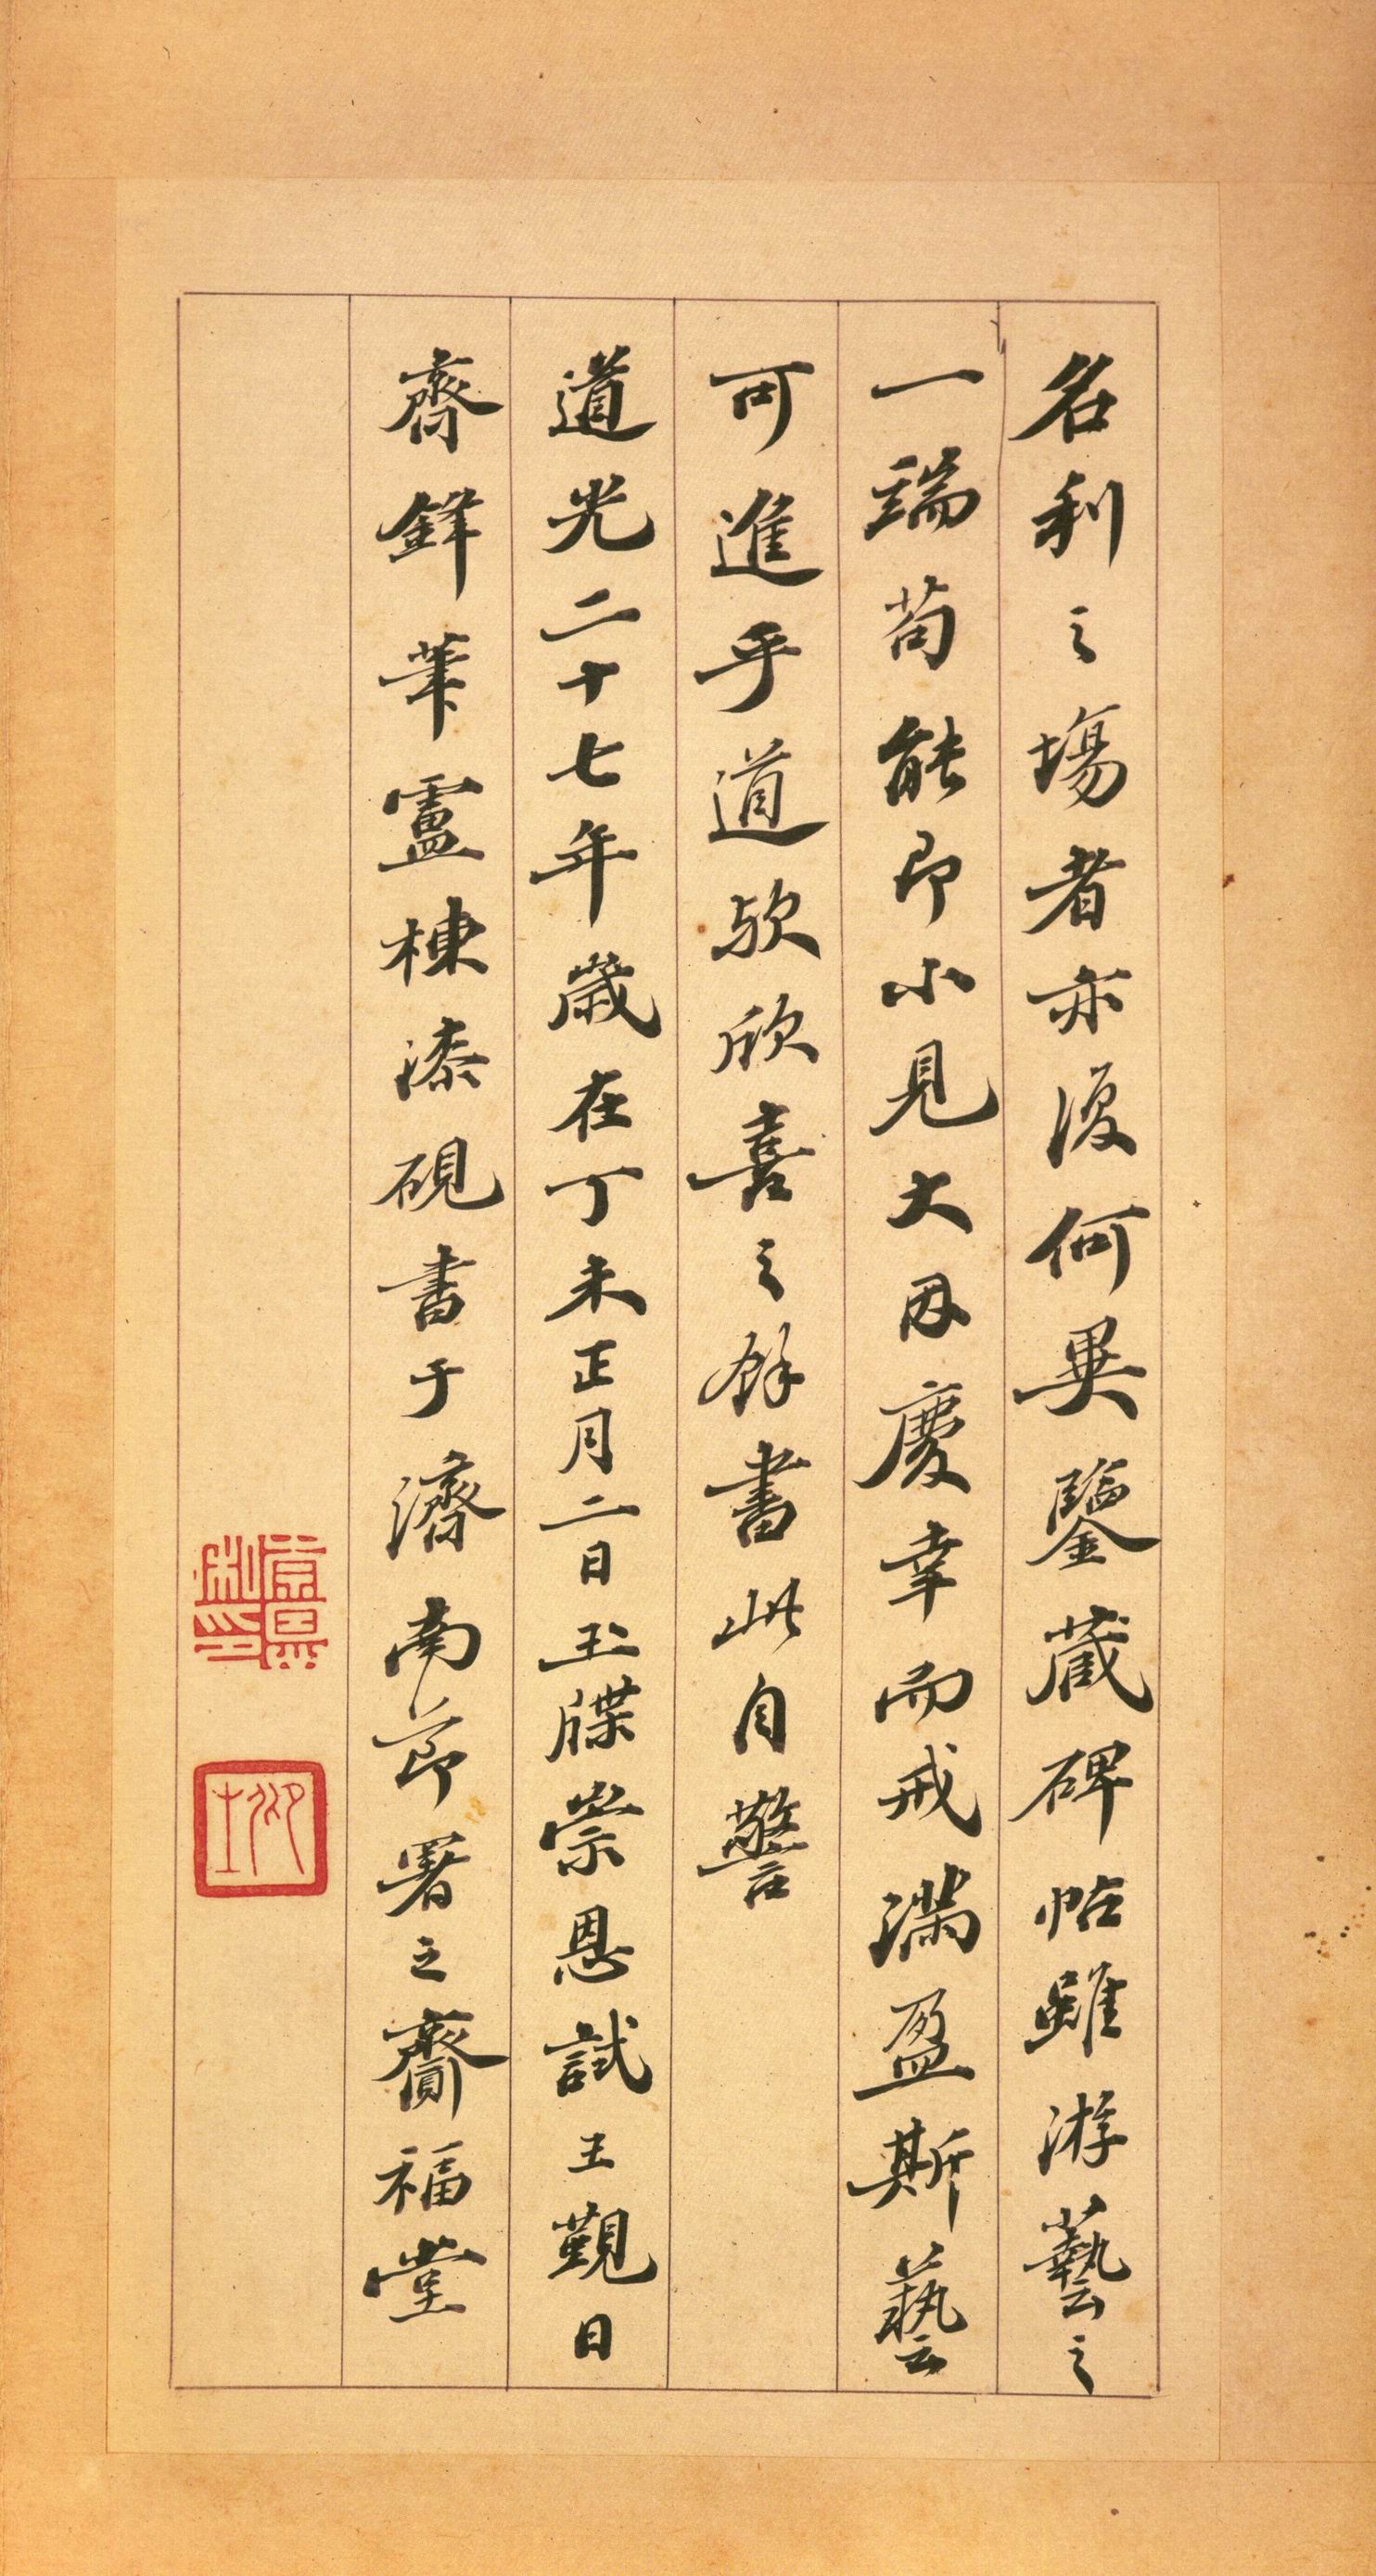 名利之場者亦復何異鑒藏碑帖雖游藝之
一端苟能即小見大因慶幸而戒滿盈斯藝
可進乎道歟欣喜之餘書此自警
道光二十七年歲在丁未正月二日玉牒崇恩試王觀日
齋鋒筆盧棟漆硯書于濟南節署之齋福堂
崇恩私印
仰之